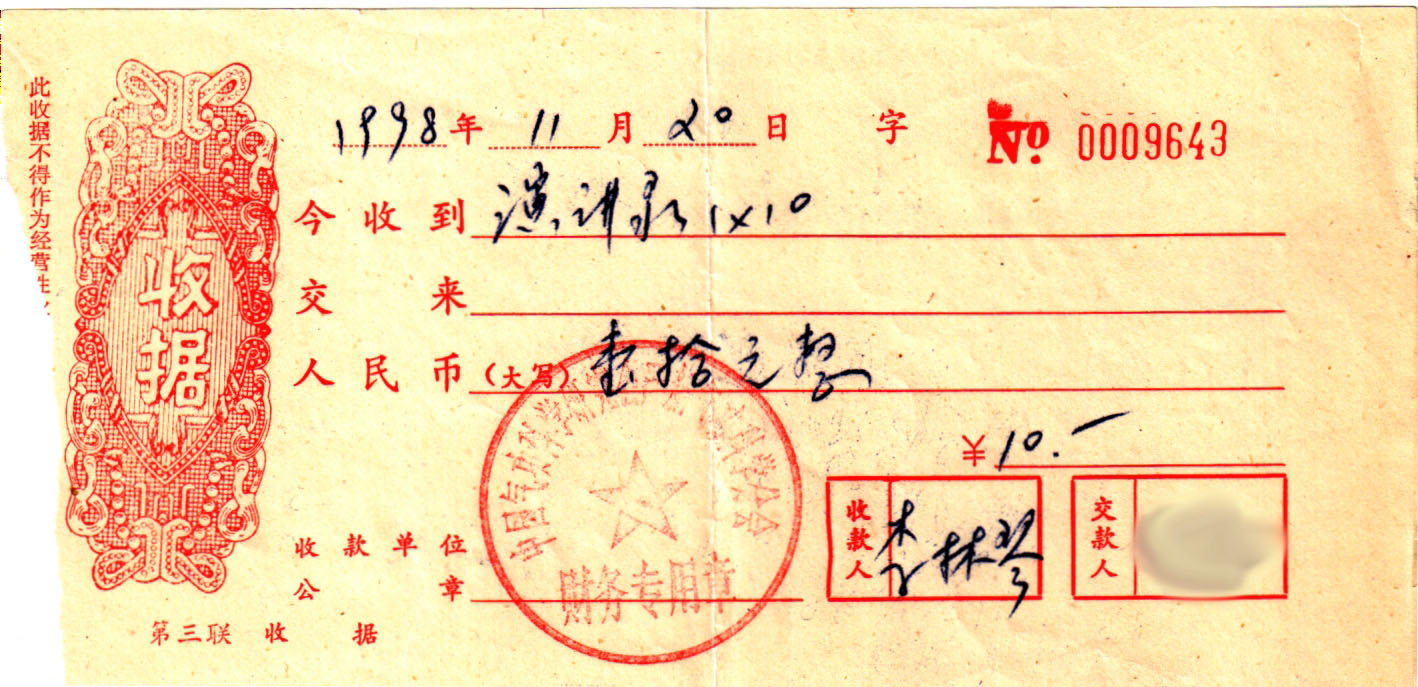 此收据不得作为经营性
收据
1998年 11月 20日 字 № 0009643
今收到 演讲录 1×10
交来
人民币(大写) 壹拾元整
¥10.-
收款单位
公章
中国气功科学研究会
科学
财务专用章
收款人 李林琴
交款人
第三联 收据